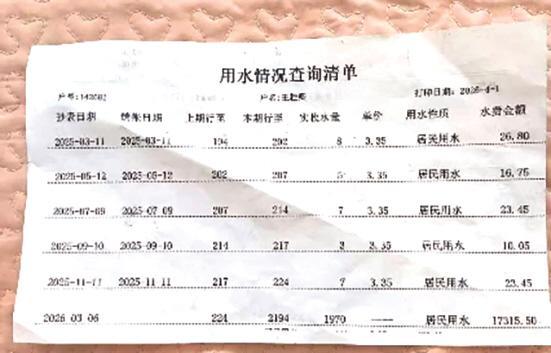 用水情况查询清单
户名: 打印日期: 2026-4-1
抄表日期 日期 上期行至 本期行至 实收水量 单价 用水性质 水费金额
2025-03-11 2025-03-11 194 202 8 3.35 居民用水 26.80
2025-05-12 2025-05-12 202 207 5 3.35 居民用水 16.75
2025-07-09 2025-07-09 207 214 7 3.35 居民用水 23.45
2025-09-10 2025-09-10 214 217 3 3.35 居民用水 10.05
2025-11-11 2025-11-11 217 224 7 3.35 居民用水 23.45
2026-03-06 224 2194 1970 —— 居民用水 17315.50